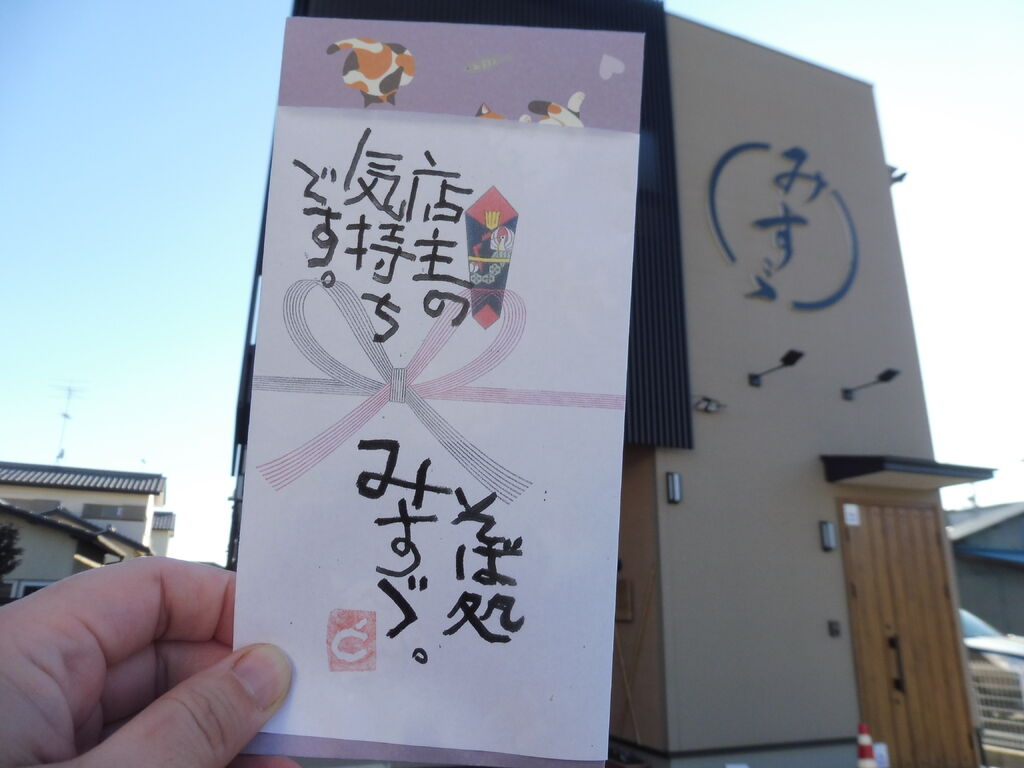 店主の
気持ち
です。
そば処
みすゞ。
みすゞ